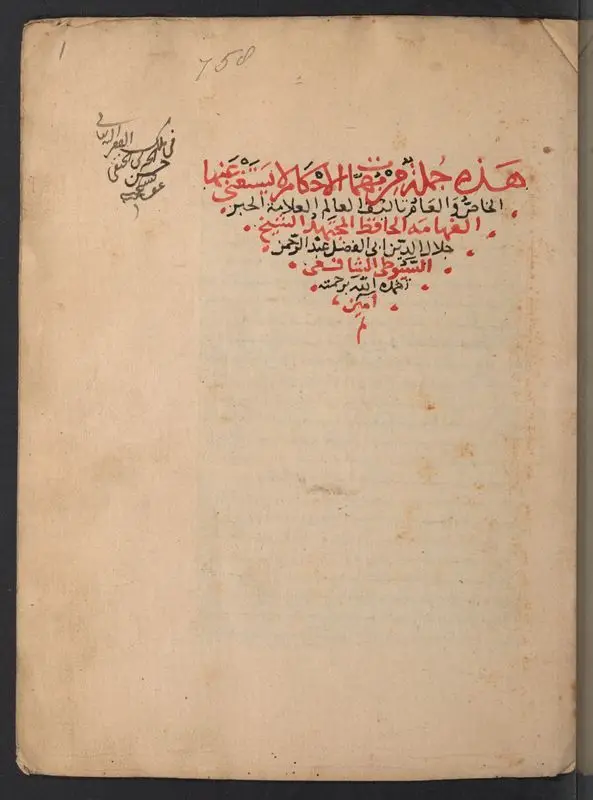 1
758
هذه جملة من مهمات الاحكام لا يستغني عنها
الخاص والعام تاليف العالم العلامة الحبر
الفهامه الحافظ المجتهد الشيخ
جلال الدين ابي الفضل عبد الرحمن
السيوطي الشافعي
تغمده الله برحمته
امين
م
في ملك
الفقير
حسن